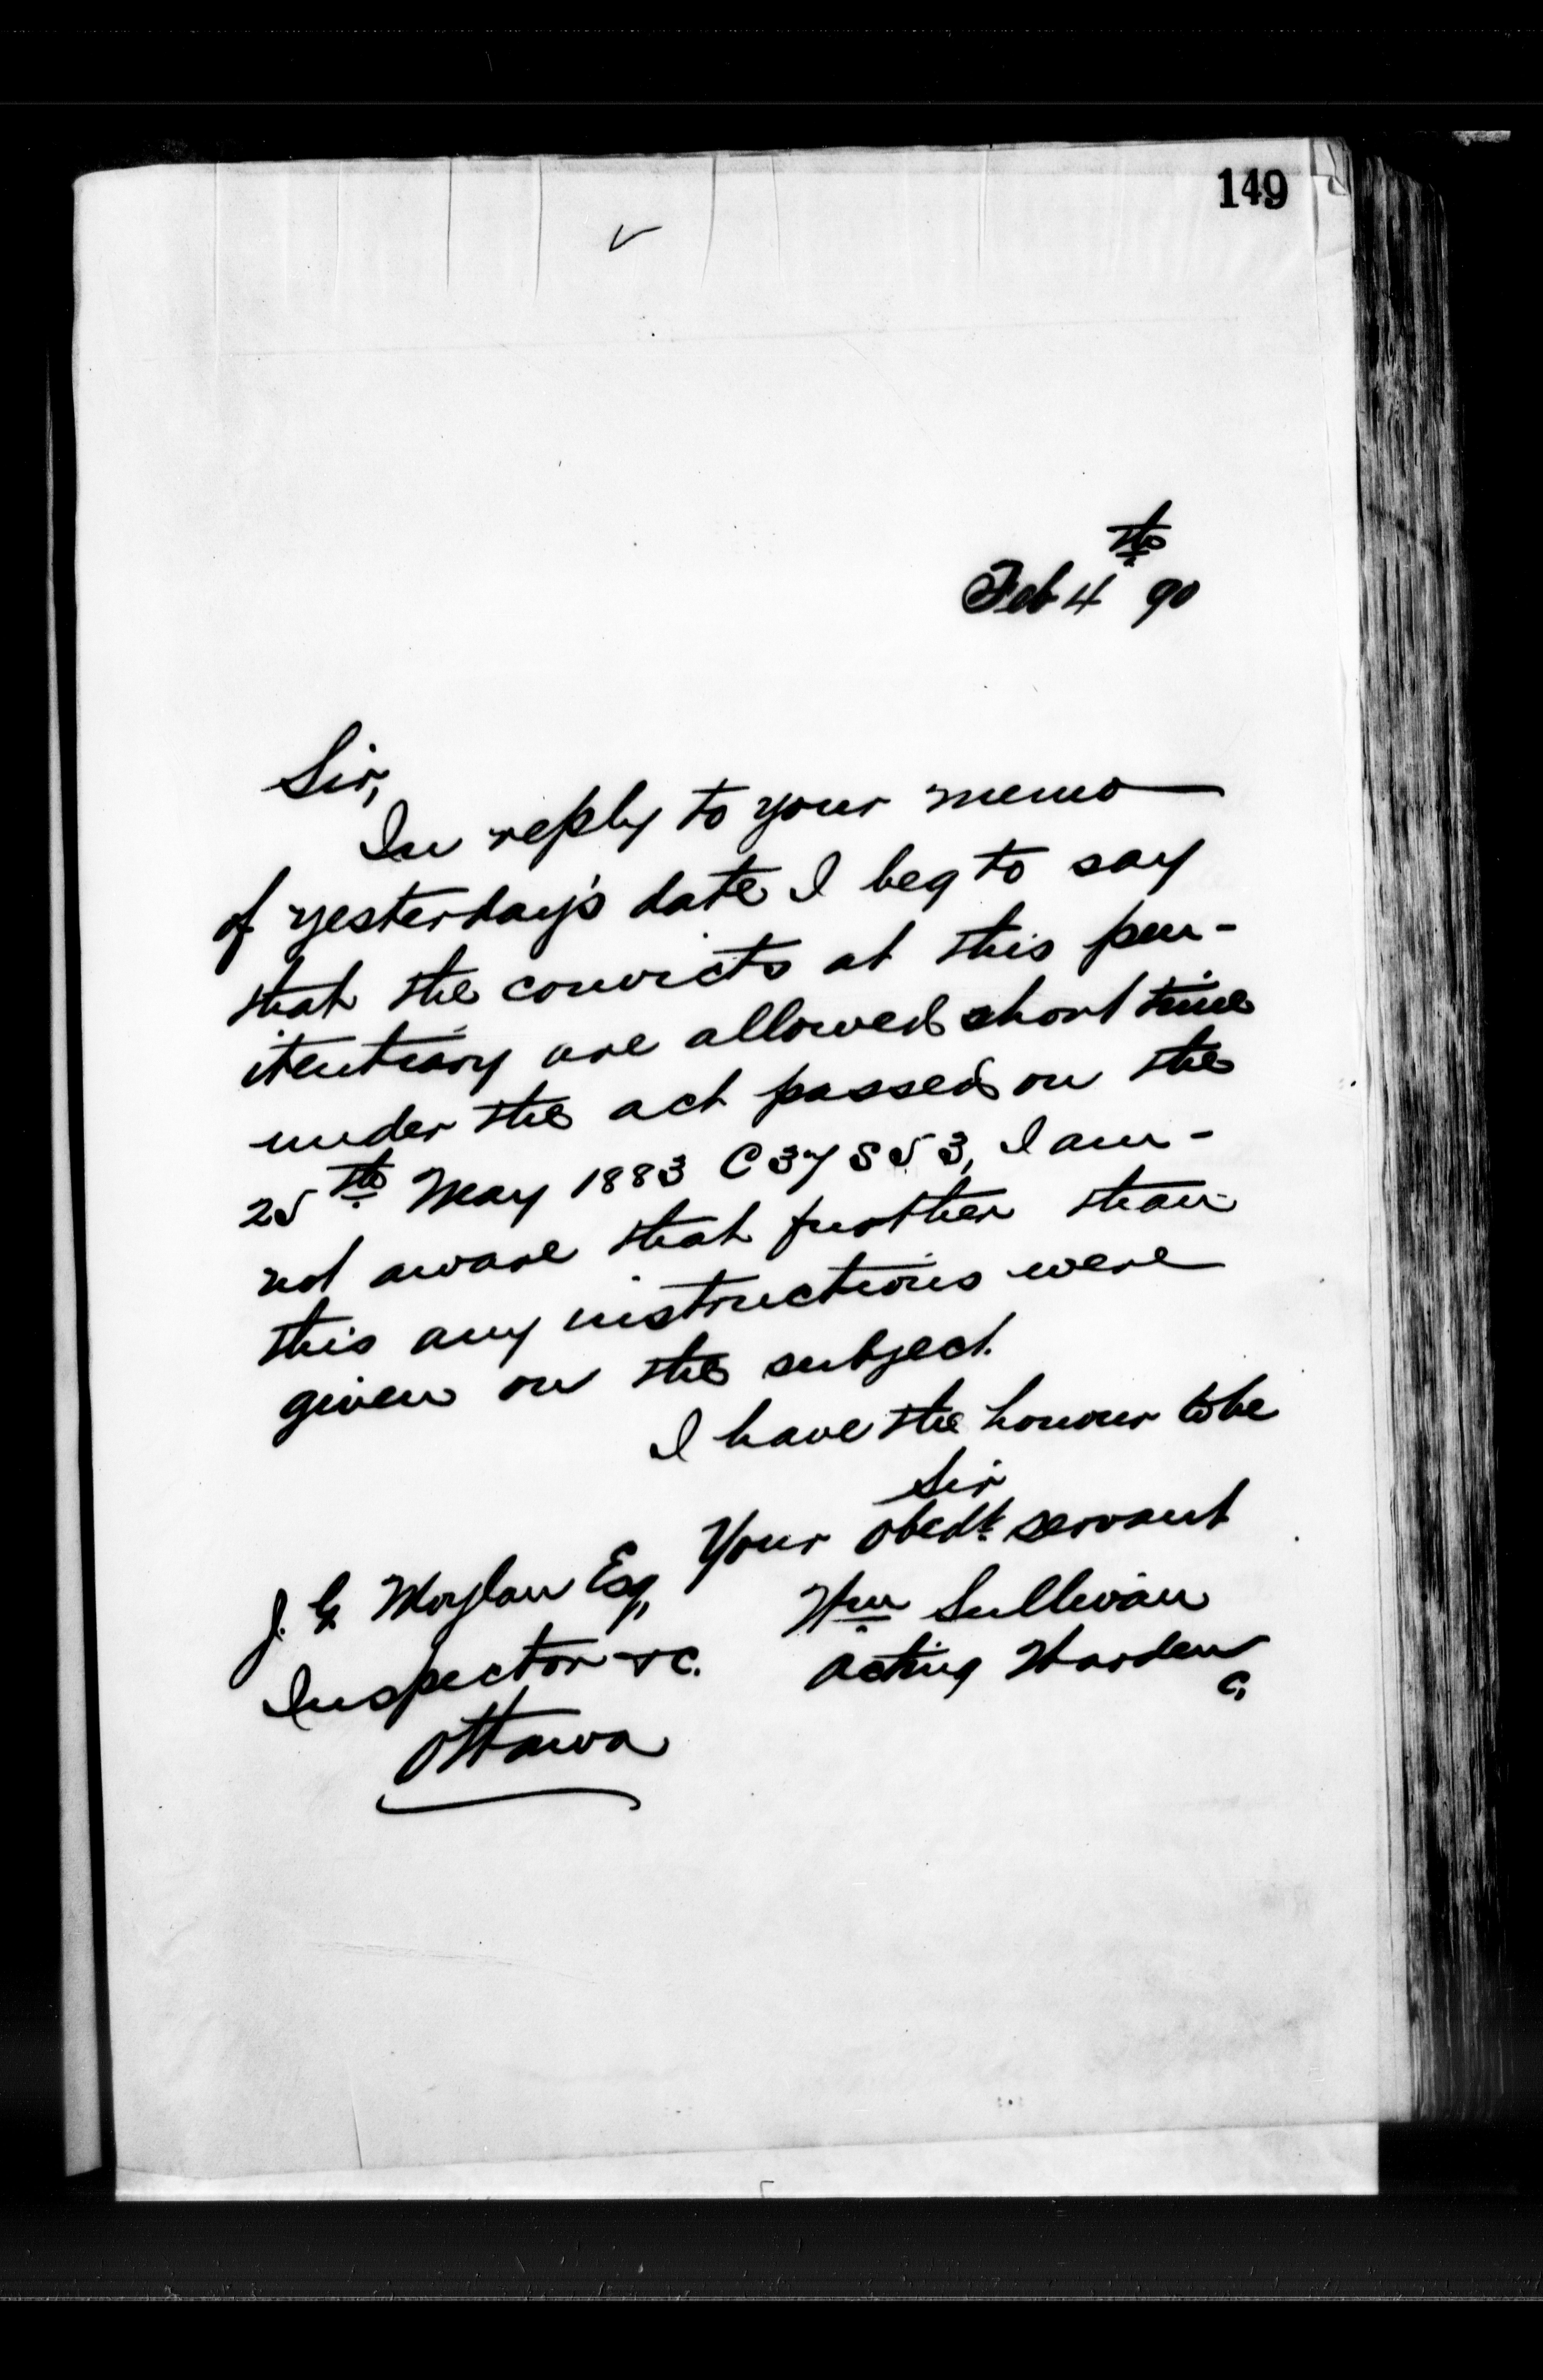 149
Feb 4th 90
Sir,
In reply to your memo
of yesterday's date I beg to say
that the convicts at this pen-
itentiary are allowed short time
under the act passed on the
25th May 1883 C 37 S 53, I am -
not aware that further than
this any instructions were
given on the subject.
I have the honour to be
Sir
Your obedt. servant
Wm Sullivan
Acting Warden
J. G. Moylan Esq,
Inspector &c.
Ottawa